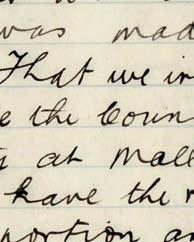 was mad
That we in
e the Coun
s at Mall
have the r
portion a